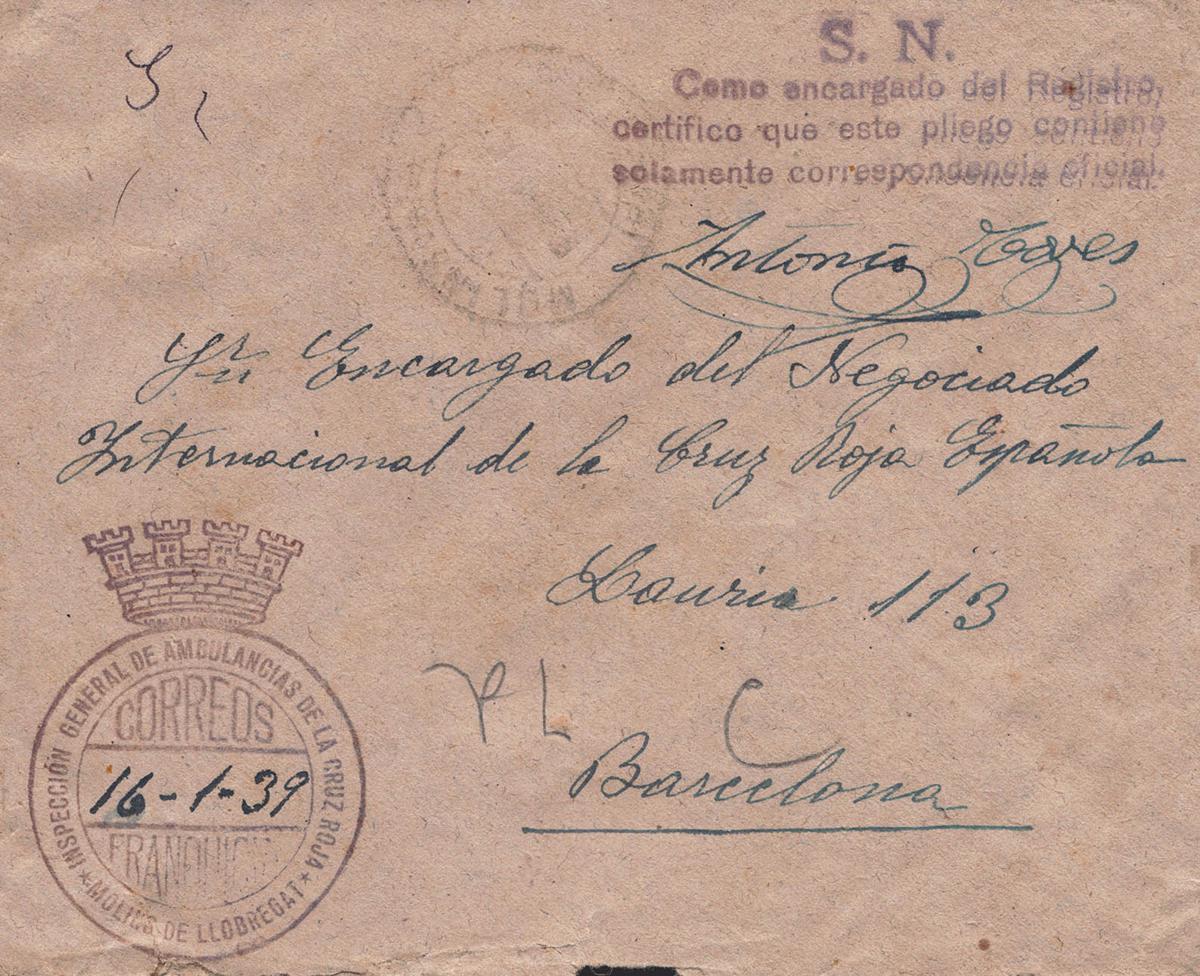 S. N.
Como encargado del Registro,
certifico que este pliego contiene
solamente correspondencia oficial.
Antonio
Sr. Encargado del Negociado
Internacional de la Cruz Roja Española
Lauria 113
Barcelona
INSPECCIÓN GENERAL DE AMBULANCIAS DE LA CRUZ ROJA
CORREOS
16-1-39
FRANQUICIA
★ MOLINS DE LLOBREGAT ★